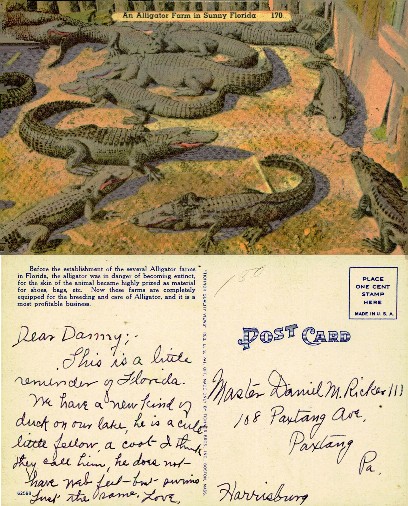 An Alligator Farm in Sunny Florida 170
Before the establishment of the several Alligator farms
in Florida, the alligator was in danger of becoming extinct,
for the skin of the animal became highly prized as material
for shoes, bags, etc. Now these farms are completely
equipped for the breeding and care of Alligator, and it is a
most profitable business.
Dear Danny;-
This is a little
reminder of Florida.
We have a new kind of
duck on our lake, he is a cute
little fellow, a coot I think
they call him, he does not
have web feet-but swims
just the same, Love,
POST CARD
PLACE
ONE CENT
STAMP
HERE
MADE IN U. S. A.
Master Daniel M. Ricker III
108 Paxtang Ave.
Paxtang
Pa.
Harrisburg